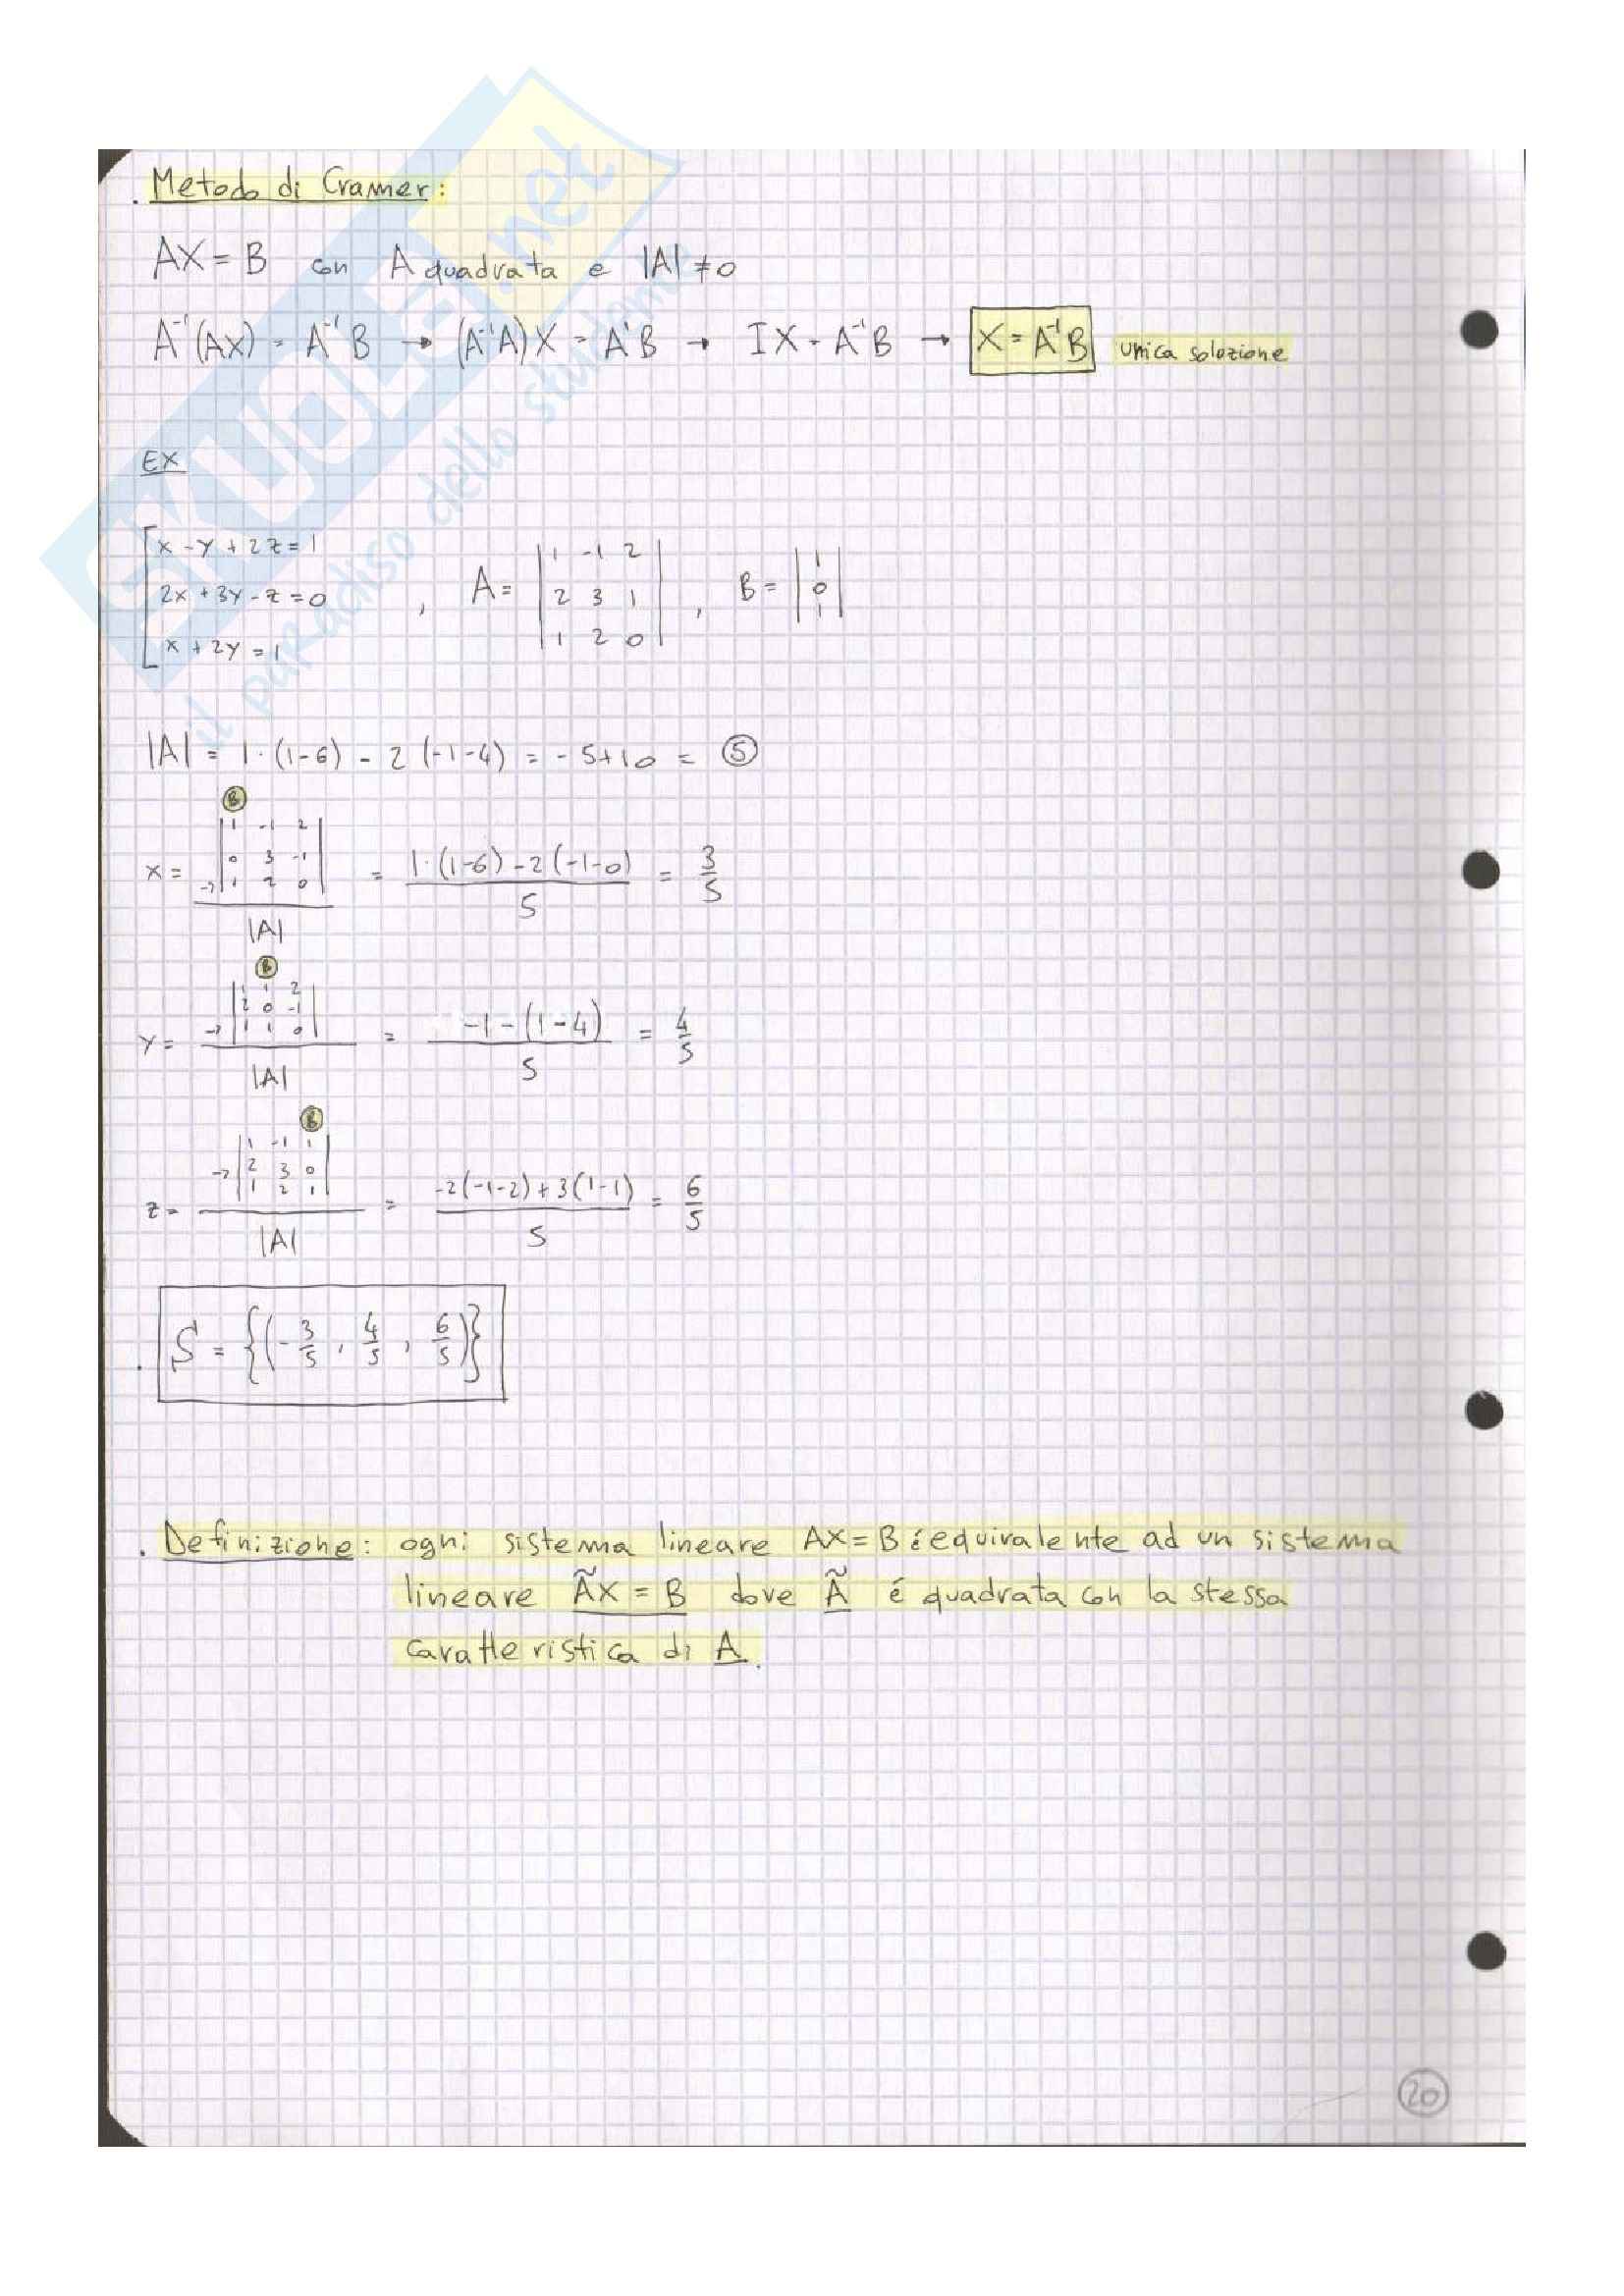 . Metodo di Cramer:
AX = B con A quadrata e |A| ≠ 0
A⁻¹(AX) = A⁻¹B → (A⁻¹A)X = A⁻¹B → IX = A⁻¹B → X = A⁻¹B unica soluzione
EX
x - y + 2z = 1
2x + 3y - z = 0
x + 2y = 1
, A = | 1 -1 2 |
| 2 3 1 |
| 1 2 0 |
, B = | 1 |
| 0 |
| 1 |
|A| = 1·(1-6) - 2(-1-4) = -5+10 = 5
B
x = | 1 -1 2 |
| 0 3 -1 |
→ | 1 2 0 |
/ |A| = 1·(1-6)-2(-1-0) / 5 = 3/5
B
y = | 1 1 2 |
| 2 0 -1 |
→ | 1 1 0 |
/ |A| = -1-(1-4) / 5 = 4/5
B
z = | 1 -1 1 |
→ | 2 3 0 |
| 1 2 1 |
/ |A| = -2(-1-2)+3(1-1) / 5 = 6/5
. S = {(-3/5, 4/5, 6/5)}
. Definizione: ogni sistema lineare AX = B é equivalente ad un sistema
lineare ÃX = B dove Ã é quadrata con la stessa
caratteristica di A.
20
SKUOLA.net
il paradiso dello studente